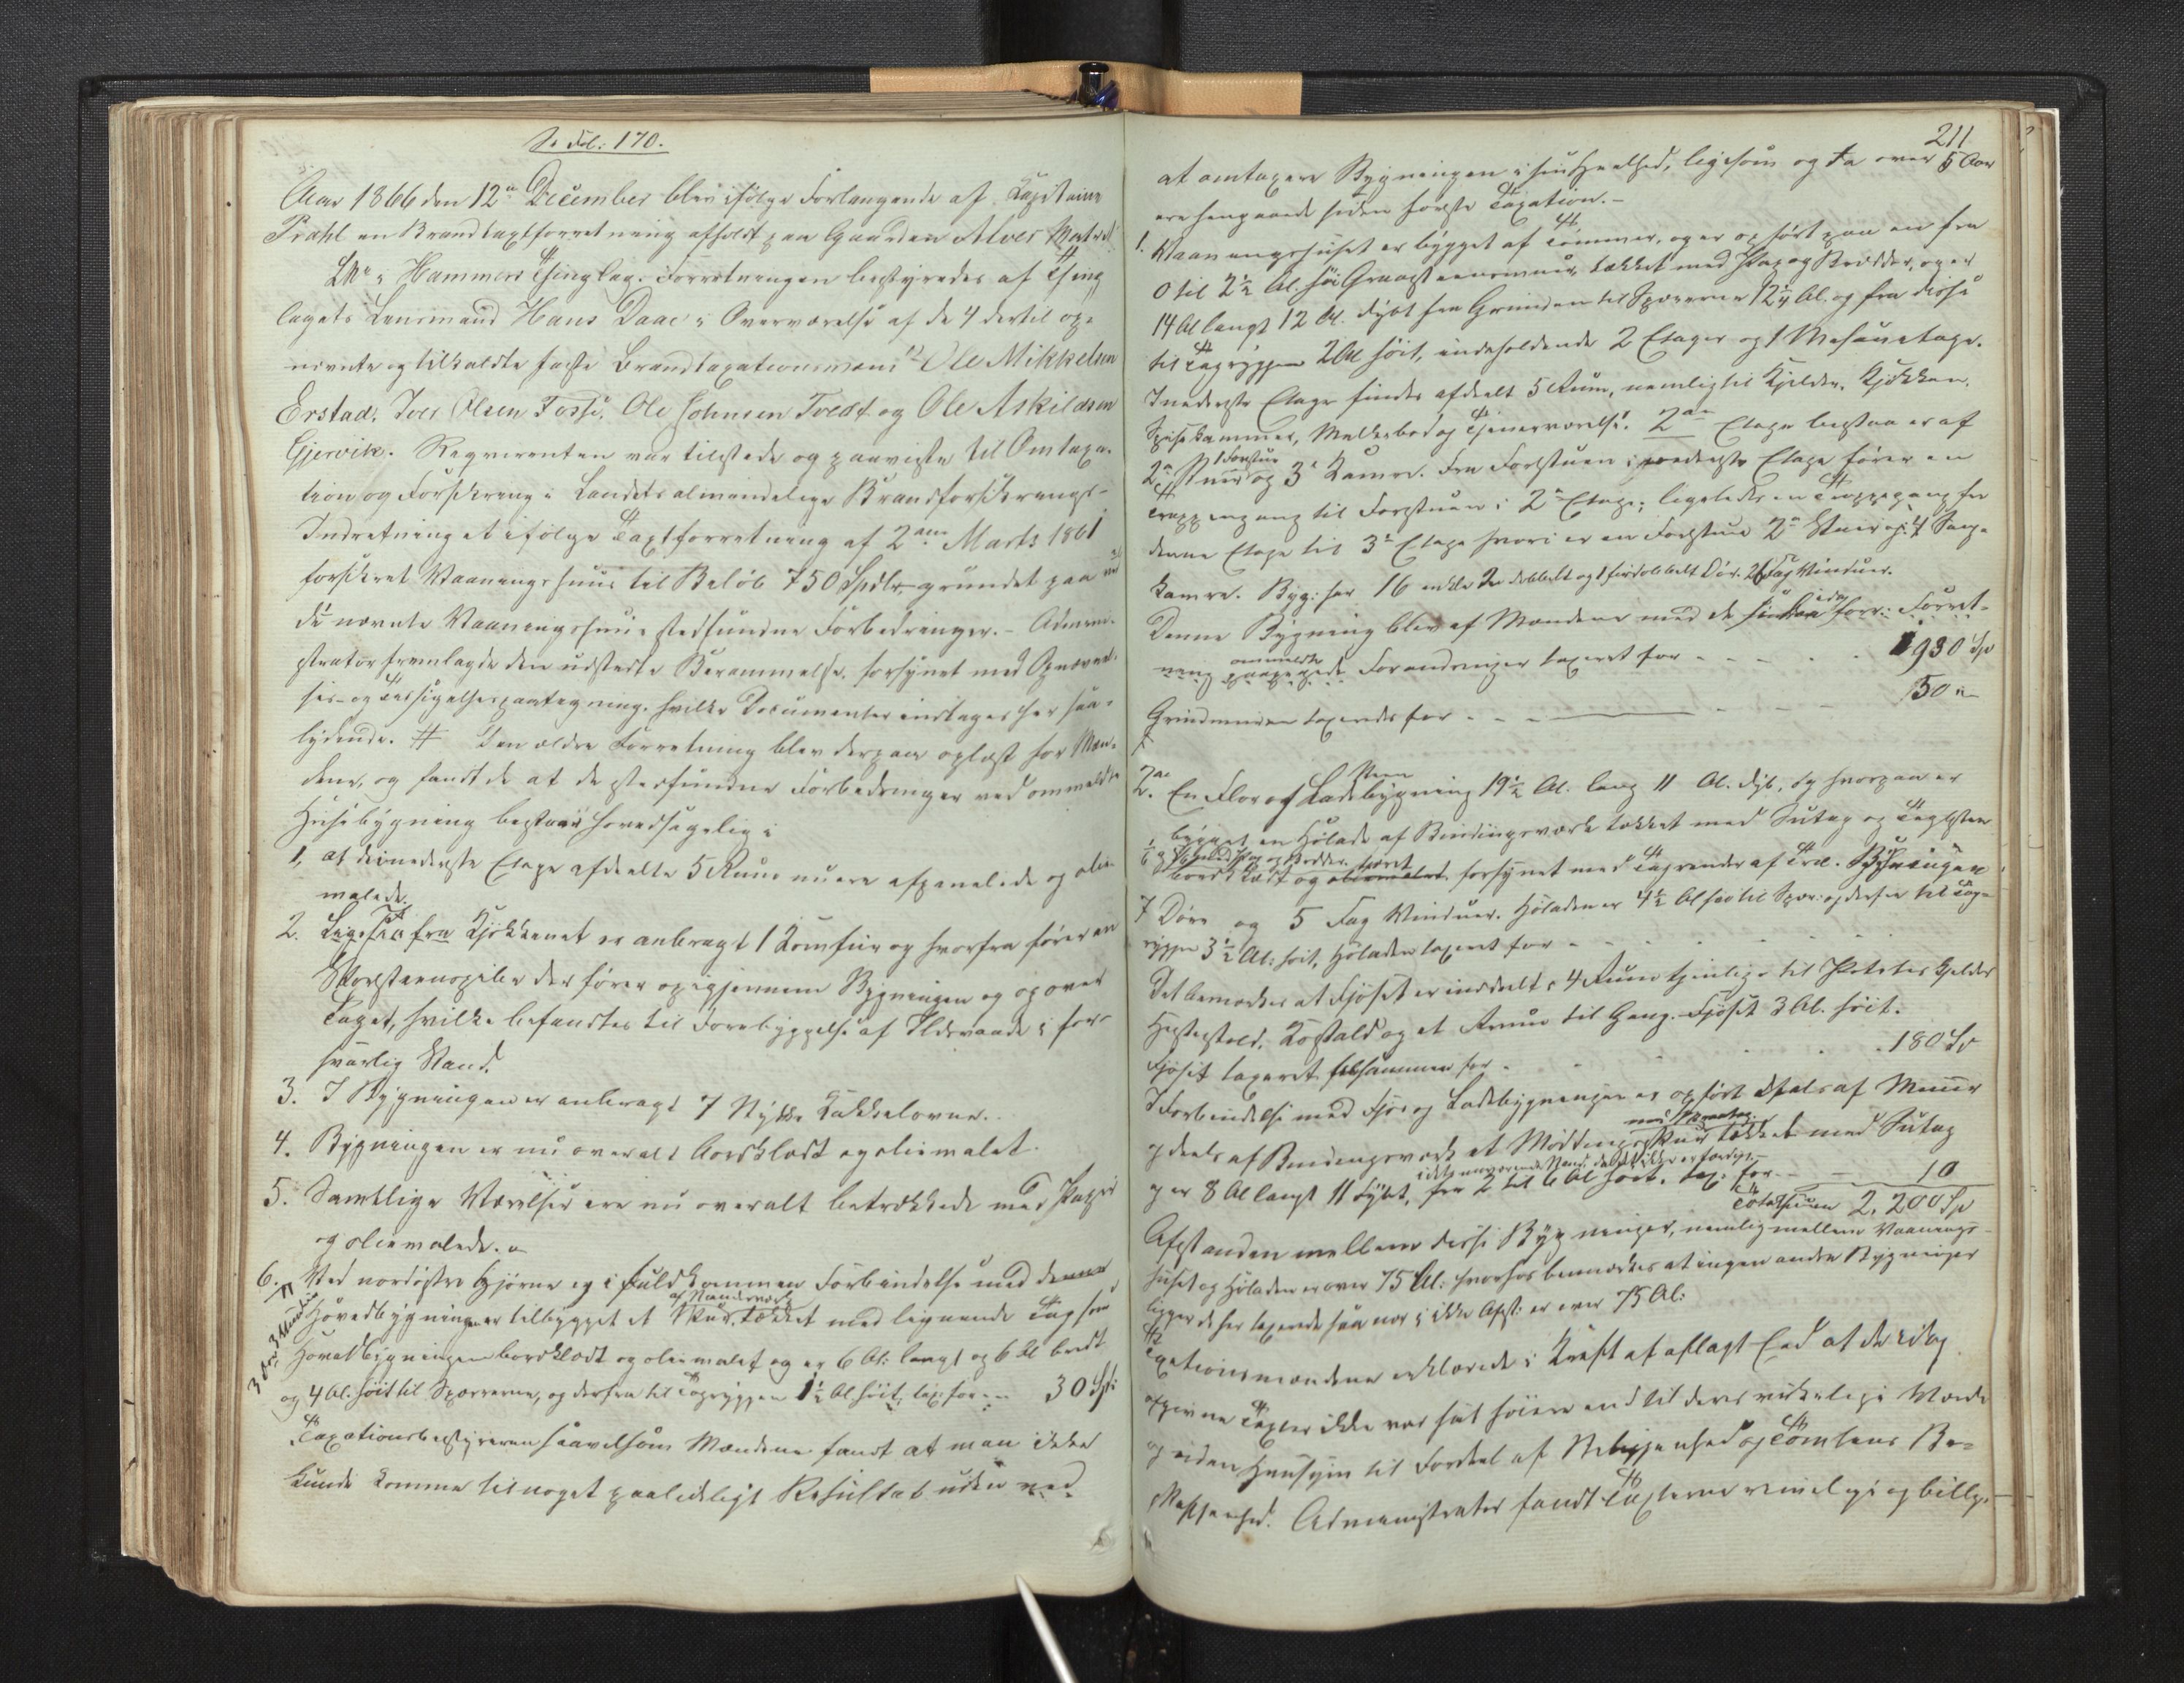 Se Fol: 170.
Aar 1866 den 12te December blev ifølge Forlangende af Kapitaine
Prahl en Brandtaxtforretning afholdt paa Gaarden Alver Matr:
LNr i Hammers Thinglag. Forretningen bestyredes af Thing
lagets Lensmand Hans Daae i Overværelse af de 4 dertil op-
nævnte og tilkaldte faste Brandtaxationsmænd Ole Mikkelsen
Erstad, Iver Olsen Fosse, Ole Johnsen Tvedt og Ole Askildsen
Gjervik. Reqvirenten var tilstede og paaviste til Omtaxa-
tion og Forsikring i Landets almindelige Brandforsikrings-
Indretning et ifølge Taxtforretning af 2den Marts 1861
forsikret Vaaningshuus til Beløb 750 Spdlr, grundet paa ved
de nævnte Vaaningshuus stedfundne Forbedringer. – Admini-
strator fremlagde den udstedte Berammelse, forsynet med Opnævnel-
ses- og Tilsigelsespaategning, hvilke Documenter indtages her saa-
lydende. # Den ældre Forretning blev derpaa oplæst for Mæn-
dene, og fandt de at de stedfundne Forbedringer ved ommeldte
Huusebygning bestaar hovedsagelig i
1, at de i nederste Etage afdeelte 5 Rum nu ere afpanelede og olie
malede.
2. Ligesaa fra Kjøkkenet er anbragt 1 Komfur og hvorfra fører en
Skorsteenspibe der fører op igjennem Bygningen og op over
Taget, hvilke befandtes til Forebyggelse af Ildsvaade i for-
svarlig Stand.
3. I Bygningen er anbragt 7 Stykke Kakkelovne.
4. Bygningen er nu overalt bordklædt og oliemalet.
5. Samtlige Værelser ere nu overalt betrækkede med Papir
og oliemalede.
6. Ved nordøstre Hjørne og i fuldkommen Forbindelse med denne
af Standerværk
Hovedbygningen er tilbygget et Skur, tækket med lignende Tag som
Hovedbygningen bordklædt og oliemalet og er 6 Al: langt og 6 Al bredt
og 4 Al: høit til Sparrerne, og derfra til Tagryggen 1½ Al høit, tax: for --- 30 Sp:
Taxationsbestyreren saavelsom Mændene fandt at man ikke
kunde komme til noget paalideligt Resultat uden ved
211
at omtaxere Bygningen i sin Heelhed, ligesom og da over 5 Aar
ere hengaaede siden første Taxation. –
1. Vaaningshuset er bygget af Tømmer, og er opført paa en fra
0 til 2½ Al. høi Graasteensmuur, tækket med Steen og Brædder, og er
14 Al langt 12 Al. dybt fra Grunden til Sparrerne 12¼ Al. og fra disse
til Tagryggen 2 Al høit, indeholdende 2 Etager og 1 Mesanetage.
I nederste Etage findes afdeelt 5 Rum, nemlig til Kjelder, Kjøkken,
Spisekammer, Melkebod og Tjenerværelse. 2den Etage bestaaer af
1 Forstue
2de Stuer og 3de Kamre. Fra Forstuen i nederste Etage fører en
Trappegang til Forstuen i 2den Etage; ligeledes en Trappegang fra
denne Etage til 3de Etage hvori er en Forstue 2de Stuer og 4 Senge
kamre. Byg: har 16 enkle 2 dobbelt og 1 firdobbelt Dør. 26 Fag Vinduer.
Denne Bygning blev af Mændene med de siden forr: Forret-
ommeldte
ning Forandringer taxeret for - - - - - 1,930 Sp
Grundmuren taxeredes for - - - 50 "
2den En Flor og Ladebygning 19½ Al. lang 11 Al. dyb, og hvorpaa er
Steen
bygget en Hølade af Bindingsværk tækket med Sutag og Tagsteen
bordklædt og forsynet med Tagrender af Træ. Bygningen
7 Døre og 5 Fag Vinduer. Høladen er 4½ Al høi til Spær: og derfra til Tag-
ryggen 3½ Al: høit, Høladen taxeret for - - - - -
Det bemærkes at Fjøset er inddeelt i 4 Rum tjenlige til Potetes Kjelder
Hestestald, Kostald og et Rum til Gang. Fjøset 3 Al. høit.
Fjøset taxeret tilsammen for - - - - 180 Sp
I Forbindelse med Fjøs og Ladebygningen er opført deels af Muur
og deels af Bindingsværk et Møddingsskuur, tækket med Sutag
i dets nuværende Stand, da det ikke er færdigt. –
og er 8 Al langt 11 dybt, fra 2 til 6 Al høit. tax: for - - - 10
Totalsum 2,200 Sp
Afstanden mellem disse Bygninger, nemlig mellem Vaanings-
huset og Høladen er over 75 Al: hvorhos bemærkes at ingen andre Bygninger
ligger de her taxerede saa nær i ikke Afst: er over 75 Al:
Taxationsmændene erklærede i Kraft af aflagt Eed at de idag
afgivne Taxter ikke var sat høiere end til deres virkelige Værdi
og uden Hensyn til Fordeel af Beliggenhed og Tomtens Be-
skaffenhed. Administrator fandt Taxterne rimelige og billige.